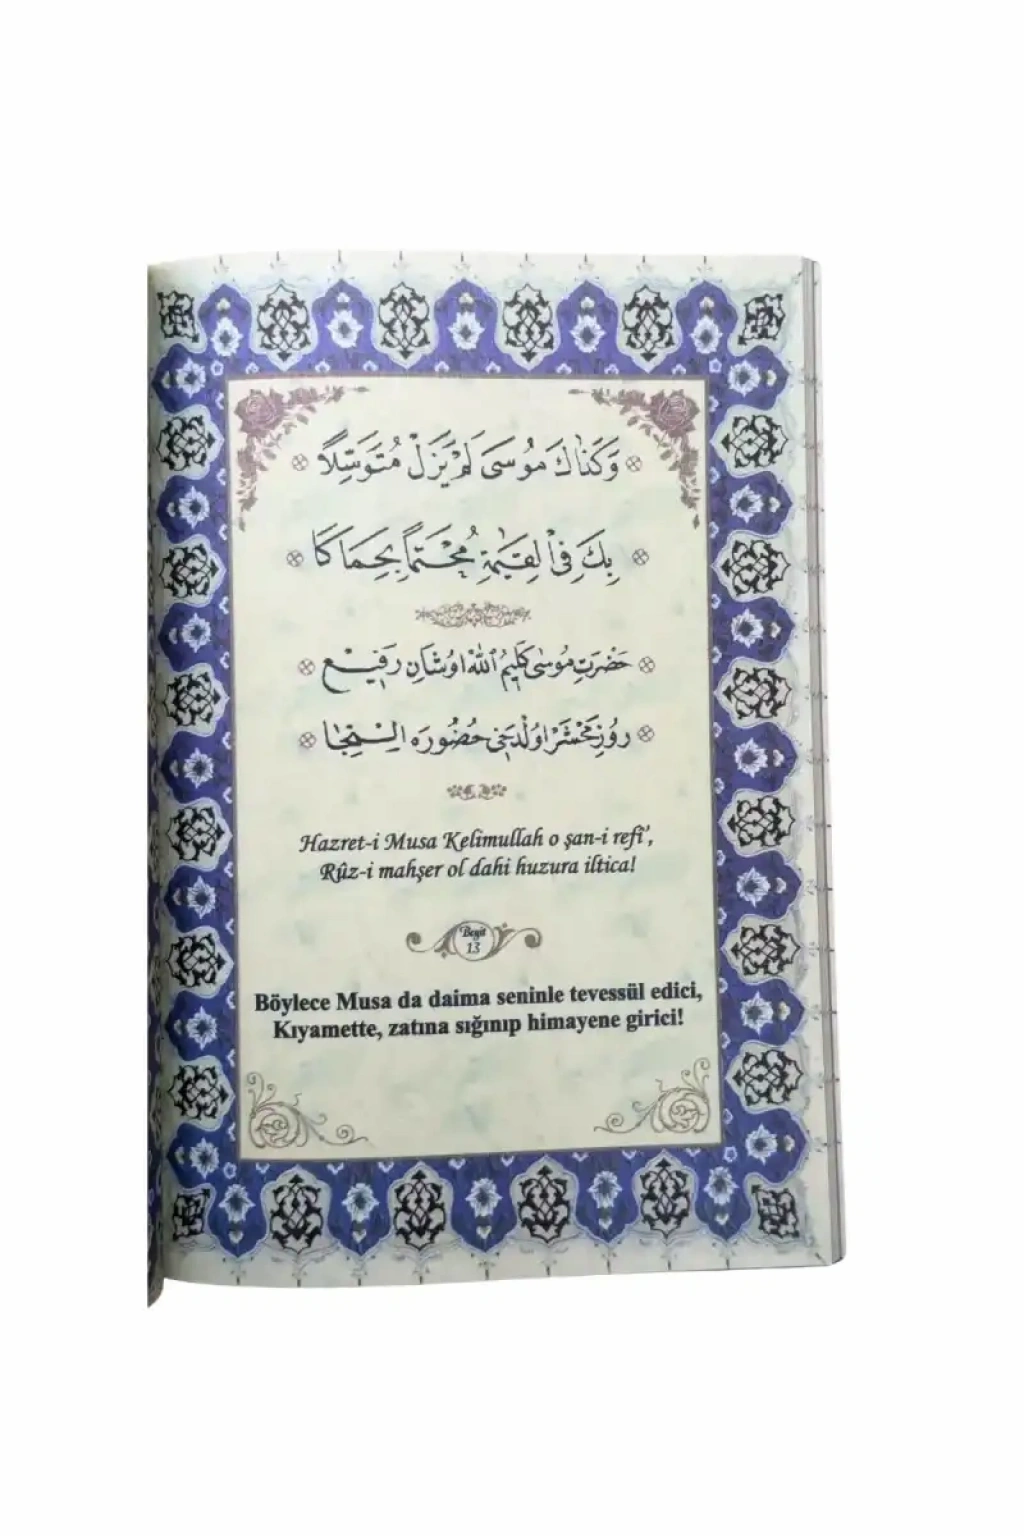 وَكَذَاكَ مُوسَى لَمْ يَزَلْ مُتَوَسِّلًا
بِكَ فِي الْقِيٰمَةِ مُحْتَمًا بِحِمَاكَا
حَضْرَتِ مُوسٰى كَلِيمُ اللّٰه اوشَانِ رَفِيعْ
رُوزِ مَحْشَرْ اوُلْدَخِى حُضُورَه اِلْتِجَا
Hazret-i Musa Kelimullah o şan-i refî',
Rûz-i mahşer ol dahi huzura iltica!
Beyit
13
Böylece Musa da daima seninle tevessül edici,
Kıyamette, zatına sığınıp himayene girici!